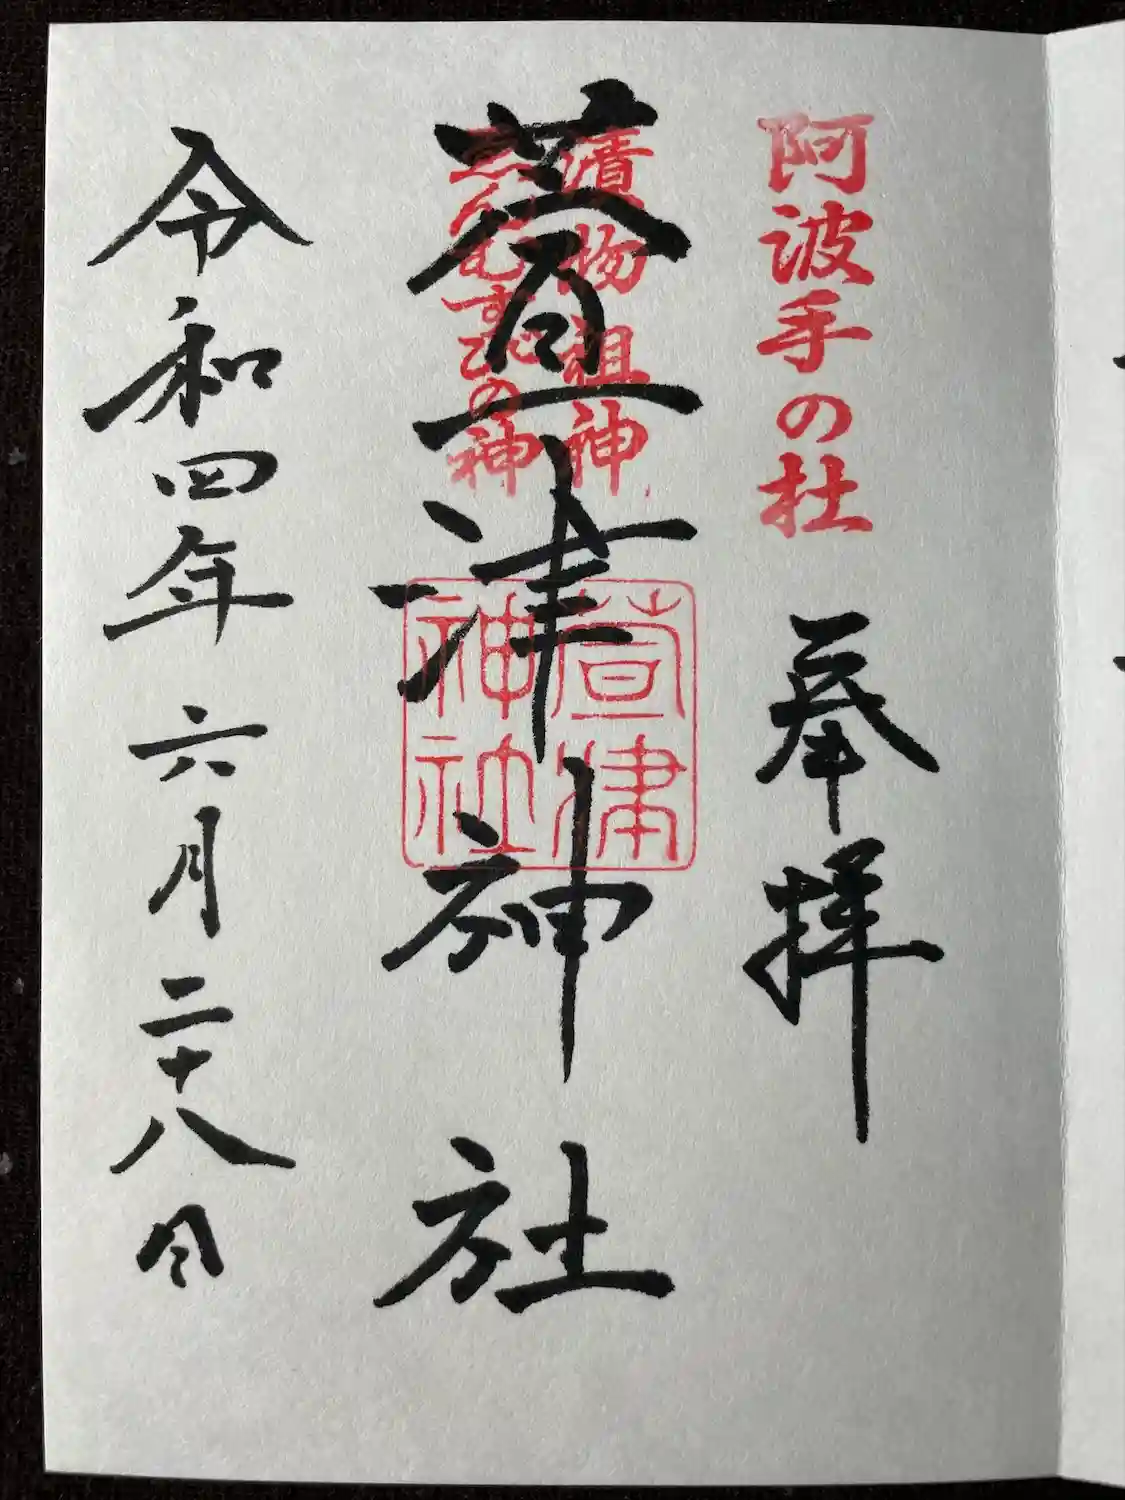 阿波手の杜
奉拝
漬物祖神
ゑんむすびの神
萱津神社
萱津
神社
令和四年六月二十八日